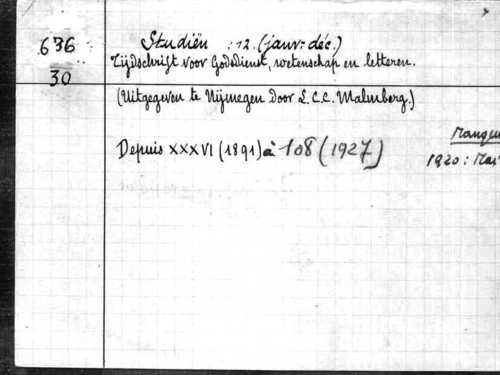 636
30
Studiën : 12. (janv.-déc.)
Tijdschrift voor Godsdienst, wetenschap en letteren.
(Uitgegeven te Nijmegen door L.C.C. Malmberg.)
Depuis XXXVI (1891) à 108 (1927)
Manqu
1920 : Mai